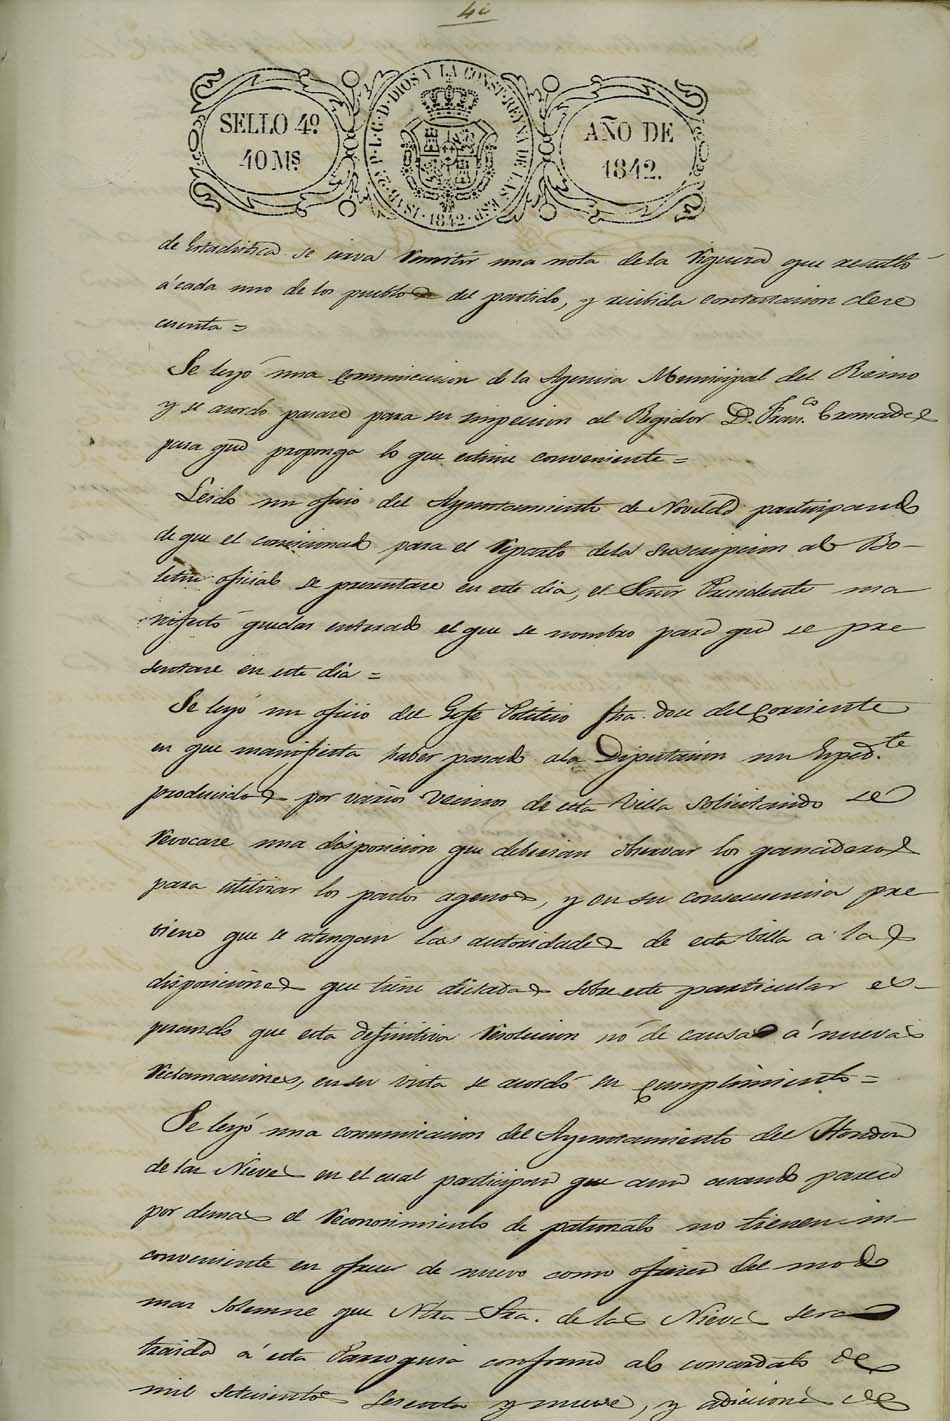 40
SELLO 4º
40 Ms.
ISAB. 2ª P. L. G. D. DIOS Y LA CONST. REYNA DE LAS ESP. 1842
AÑO DE
1842.
de Estadistica se sirva remitir una nota de la riqueza que resultó
á cada uno de los pueblos del partido, y recibida contestacion dese
cuenta =
Se leyó una comunicacion de la Agencia Municipal del Reino
y se acordo pasare para su inspeccion al Regidor D. Fran.co
para que proponga lo que estime conveniente =
Leido un oficio del Ayuntamiento de Novelda participando
de que el comicionado para el reparto de la suscripcion al Bo-
letin oficial se presentare en este dia, el Señor Presidente ma
nifestó quedar enterado el que se nombro para que se pre
sentare en este dia =
Se leyó un oficio del Gefe Politico fha. doce del corriente
en que manifiesta haber pasado a la Diputacion un Exped.te
producido por varios vecinos de esta Villa solicitando se
revocare una disposicion que debieran observar los ganaderos
para utilizar los pastos agenos, y en su consecuencia pre
viene que se atengan las autoridades de esta Villa a las
disposiciones que tiene dictadas sobre este particular es-
perando que esta definitiva resolucion no dé causa á nuevas
reclamaciones, en su vista se acordó su cumplimiento =
Se leyó una comunicacion del Ayuntamiento del Hondon
de las Nieves en el cual participan que aun cuando parece
por demas el reconocimiento de patronato no tienen in-
conveniente en ofrecer de nuevo como ofrecen del modo
mas solemne que Ntra. Sra. de las Nieves sera
traida á esta Parroquia conforme al concordato de
mil setecientos sesenta y nueve, y adiciones de